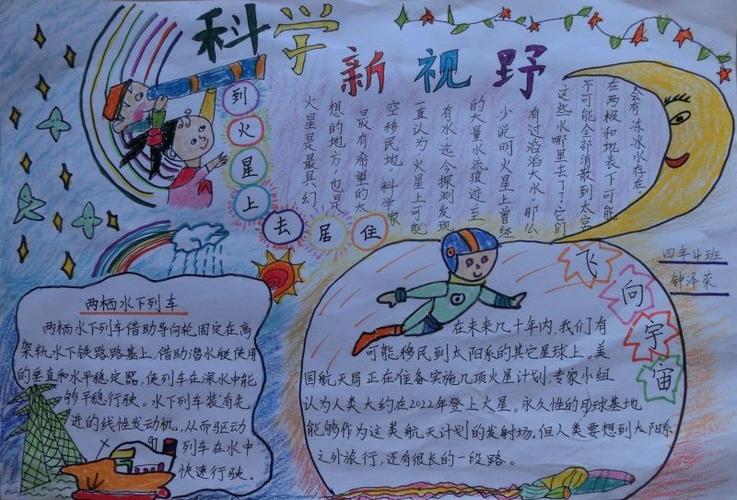 科学
新视野
到火星上去居住
火星是最具幻
想的地方,也是
最有希望的太
空移民地。科学家
一直认为火星上可能
有水迄今探测发现
的大量水流痕迹至
少说明火星上曾经
有过滔滔大水。那么
这些水哪里去了?它们
不可能全部消散到太空
在两极和地表下可能
会有冻冰水存在。
四年4班
钟泽荣
两栖水下列车
两栖水下列车借助导向轮固定在高
架轨水下铁路路基上,借助潜水艇使用
的垂直和水平稳定器,使列车在深水中能
够平稳行驶。水下列车装有先
进的线性发动机,从而驱动
列车在水中
快速行驶.
飞向宇宙
在未来几十年内,我们有
可能移民到太阳系的其它星球上。美
国航天局正在准备实施几项火星计划,专家小组
认为人类大约在2022年登上火星。永久性的月球基地
能够作为这类航天计划的发射场,但人类要想到太阳系
之外旅行,还有很长的一段路。